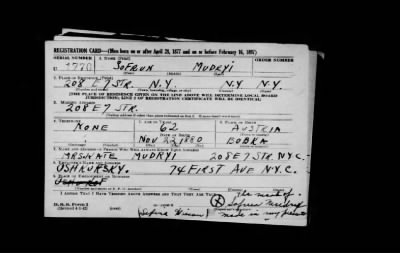 REGISTRATION CARD—(Men born on or after April 28, 1877 and on or before February 16, 1897)
SERIAL NUMBER 1. NAME (Print)
U 1770 SOFRUN MUDRYI
2. PLACE OF RESIDENCE (Print)
208 E 7 STR. N.Y. N.Y. N.Y.
[THE PLACE OF RESIDENCE GIVEN ON THE LINE ABOVE WILL DETERMINE LOCAL BOARD
JURISDICTION; LINE 2 OF REGISTRATION CERTIFICATE WILL BE IDENTICAL]
3. MAILING ADDRESS
208 E 7 STR.
4. TELEPHONE 5. AGE IN YEARS 6. PLACE OF BIRTH
NONE 62 AUSTRIA
DATE OF BIRTH
NOV 22 1880 BOBRA
7. NAME AND ADDRESS OF PERSON WHO WILL ALWAYS KNOW YOUR ADDRESS
MRS. KATE MUDRYI 208 E 7 STR. N.Y.C.
8. EMPLOYER'S NAME AND ADDRESS
USHKURSKY. 74 FIRST AVE N.Y.C.
9. PLACE OF EMPLOYMENT OR BUSINESS
I AFFIRM THAT I HAVE VERIFIED ABOVE ANSWERS AND THAT THEY ARE TRUE.
The mark of
X Sofrun Mudryi
D. S. S. Form 1
(Revised 4-1-42)
made in my presence